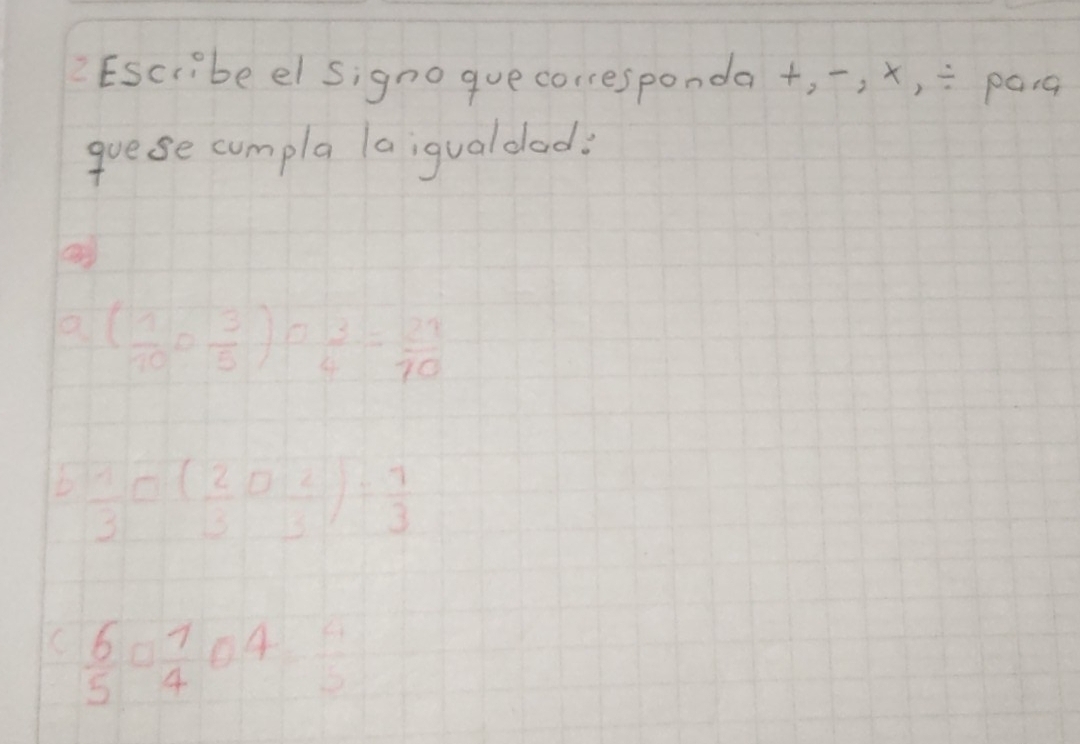 2 Escribe el signo que corresponda +, -, x, ÷ para
que se cumpla la igualdad:
a)
a (1/10 □ 3/5) □ 3/4 = 21/10
b 1/3 □ (2/3 □ 1/3) = 1/3
c 6/5 □ 1/4 □ 4